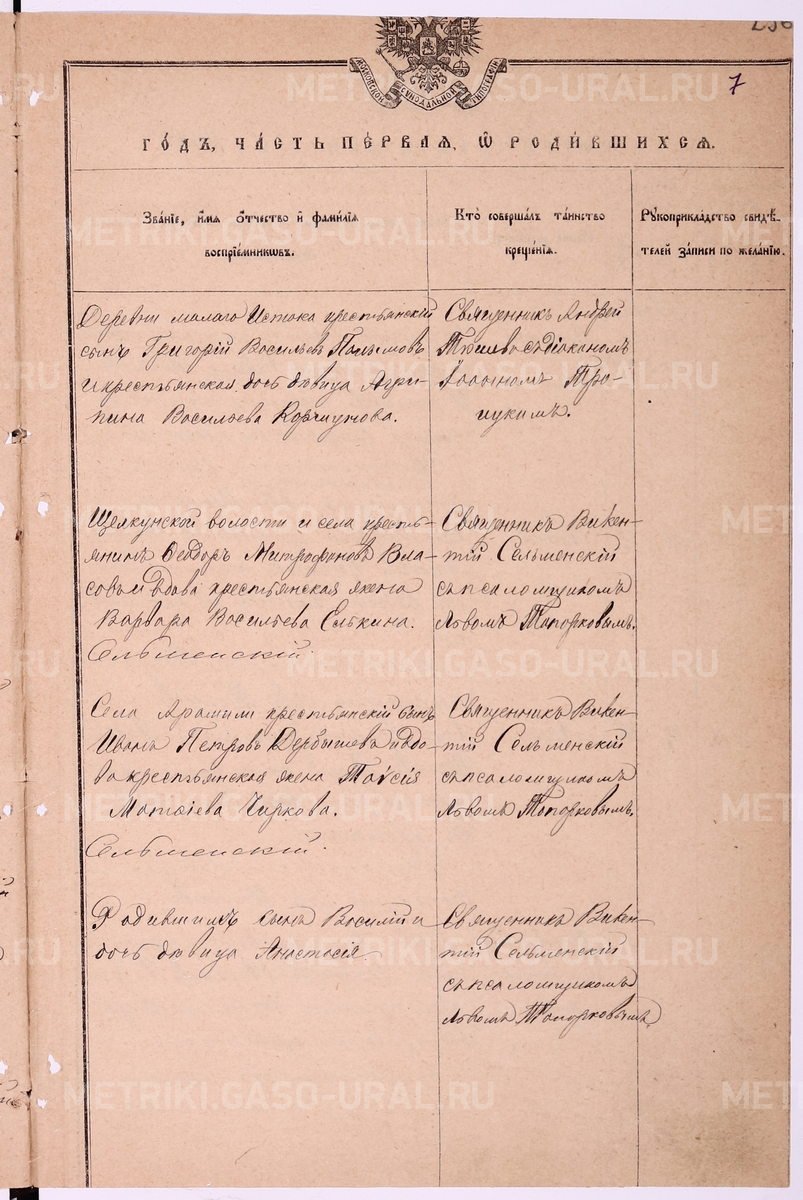 256
7
МОСКОВСКОЙ СѴНОДАЛЬНОЙ ТИПОГРАФІИ
ГОДЪ, ЧАСТЬ ПЕРВАЯ, Ѡ РОДИВШИХСЯ.
Званіе, имя отчество и фамилія
воспріемниковъ.
Кто совершалъ таинство
крещенія.
Рукоприкладство свидѣ-
телей записи по желанію.
Деревни малаго Истока крестьянскій
сынъ Григорій Васильевъ
и крестьянская дочь дѣвица Агри-
пина Васильева Коршунова.
Священникъ Андрей
съ діакономъ
Тро-
ицкимъ.
Щелкунской волости и села кресть-
янинъ Ѳеодоръ Митрофановъ Вла-
совъ и вдова крестьянская жена
Варвара Васильева Елькина.
Сельменскій.
Священникъ Викен-
тій Сельменскій
съ псаломщикомъ
Львомъ Топорковымъ.
Села Арамили крестьянскій сынъ
Иванъ Петровъ Дербышевъ и вдо-
ва крестьянская жена Таисія
Матѳіева Чиркова.
Сельменскій.
Священникъ Викен-
тій Сельменскій
съ псаломщикомъ
Львомъ Топорковымъ.
Родившихъ сынъ Василій и
дочь дѣвица Анастасія.
Священникъ Викен-
тій Сельменскій
съ псаломщикомъ
Львомъ Топорковымъ.
METRIKI.GASO-URAL.RU